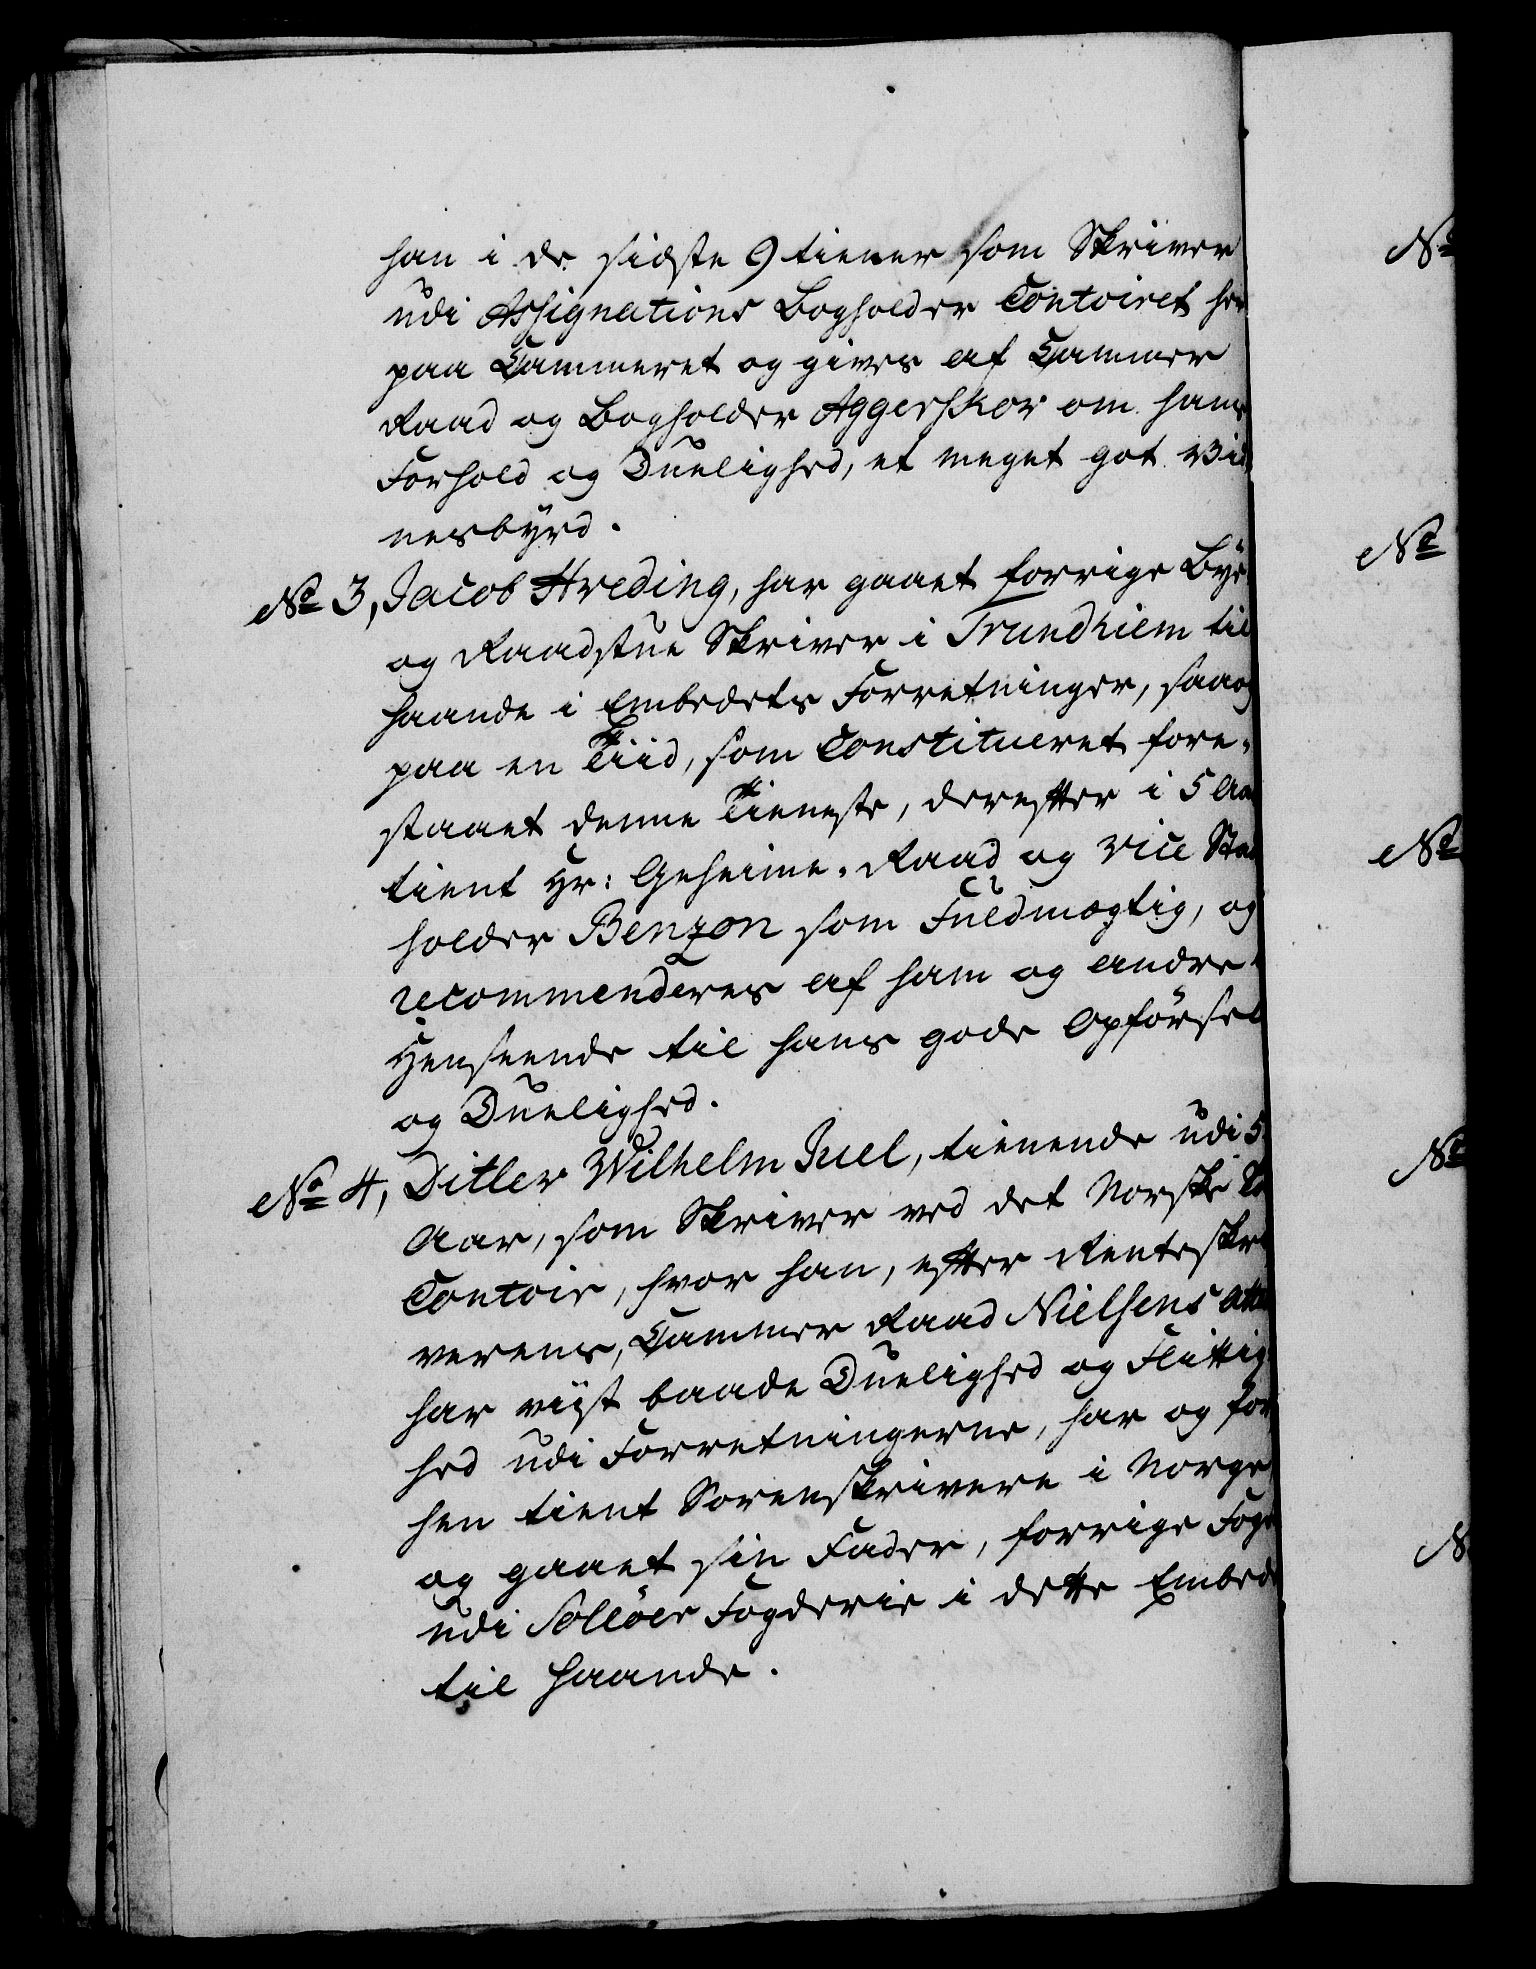 han i de sidste 9 tiener som Skriver
udi Assignations Bogholder Contoiret her
paa Cammeret og gives af Cammer
Raad og Bogholder Aggerskov om hans
Forhold og Duelighed, et meget got Vid
nesbyrd.
No 3, Jacob Hveding, har gaaet forrige Bye
og Raadstue Skriver i Trundhiem til
haande i Embedets Forretninger, saa og
paa en Tiid, som Constitueret fore-
staaet denne Tieneste, derefter i 5 Aar
tient Hr: Geheime-Raad og Vice Stat
holder Benzon som Fuldmægtig, og
recommenderes af ham og andre i
Henseende til hans gode Opførsel
og Duelighed.
No 4, Ditlev Wilhelm Juel, tienende udi 5
Aar, som Skriver ved det Norske
Contoir, hvor han, efter Renteskri
verens, Cammer Raad Nielsens
har viist baade Duelighed og Flittig
hed udi Forretningerne, har og for
hen tient Sorenskrivere i Norge
og gaaet sin Fader, forrige Foged
udi Solløer Fogderie i dette Embede
til haande.
No
No
No
No
N